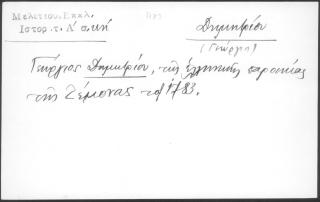 Μελετίου, Εκκλ.
Ιστορ. τ. Δ' σ. κή
Δημητρίου
(Γεώργιος)
Γεώργιος Δημητρίου, της ελληνικής παροικίας
της Ζέμονας τω 1783.